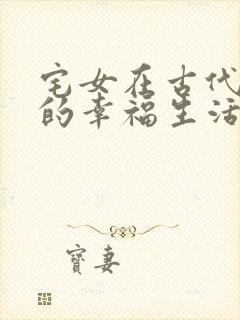 宅女在古代
的幸福生活
寶妻